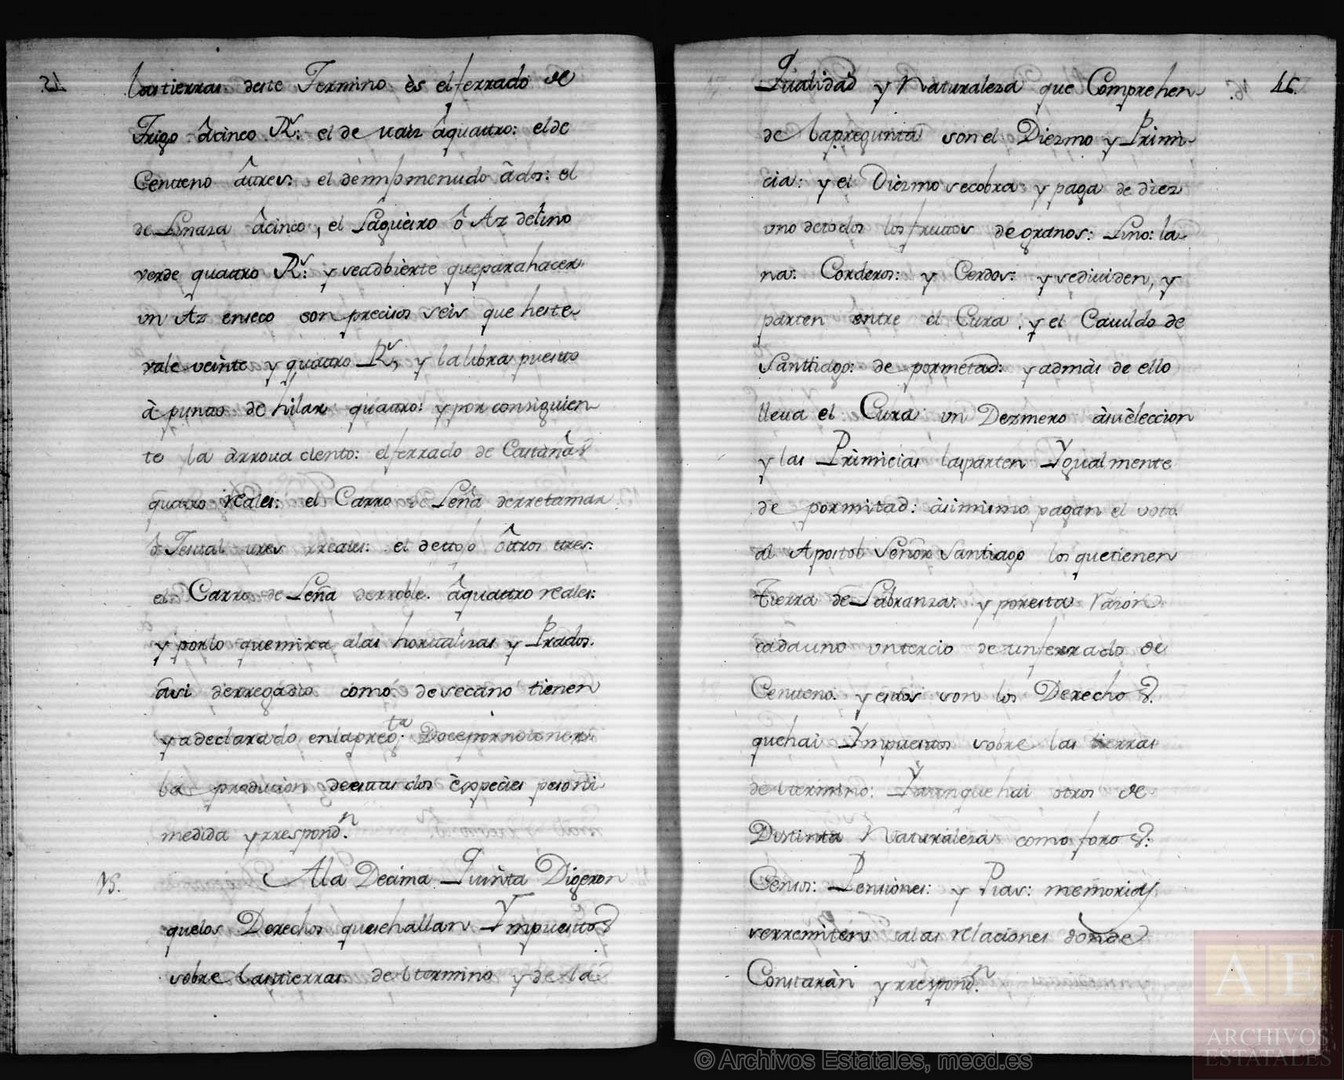 las tierras deste Termino ès el ferrado de
Trigo âcinco R.ˢ: el de maiz âquatro: el de
Centeno âtres: el de mijo menudo âdos: el
de Linaza âcinco, el Faqueiro ô Az de lino
verde quatro R.ˢ: y se adbierte que para hacer
vn Az en seco son precisos seis que heste
vale veinte y quatro R.ˢ, y la libra puesto
à puntas de hilar quatro: y por consiguien
te la àrroua ciento: el ferrado de Castañas
quatro reales: el Carro de Leña derretamar
ô Tojal tres rreales: el de tojo ôtros tres:
el Carro de Leña derroble âquatro reales:
y porlo quemira alas hortalizas y Prados.
asi derregadio como de secano tienen
ya declarado, enla preg.ᵗᵃ Doce por no tener
la produccion de estas dos èspecies peso ni
medida y rrespond.ⁿ
15. Ala Decima Quinta Digeron
quelos Derechos que se hallan Ympuestos
sobre las tierras del termino y de la
46.
Qualidad y Naturaleza que Comprehen
de la pregunta son el Diezmo y Primi
cia: y el Diezmo se cobra y paga de diez
vno de todos los frutos de granos: Lino: la
na: Corderos: y Cerdos: y se diuiden, y
parten entre el Cura, y el Cauildo de
Santtiago: de por metad: yademàs de ello
lleua el Cura vn Dezmero àsu èleccion
y las Primicias las parten Ygualmente
de por mitad: àsimismo pagan el voto
al Apostol Señor Santiago los que tienen
tierra de Labranza: y por esta razon
cada uno vn tercio de un ferrado de
Centeno. y estos son los Derechos
que hai Ympuestos sobre las tierras
del termino: Y aunque hai otros de
Distinta Naturaleza como foros:
Censos: Pensiones: y Pias: memorias
se rremiten alas relaciones donde
Constaràn y rrespond.ⁿ
© Archivos Estatales, mecd.es
AE
ARCHIVOS
ESTATALES